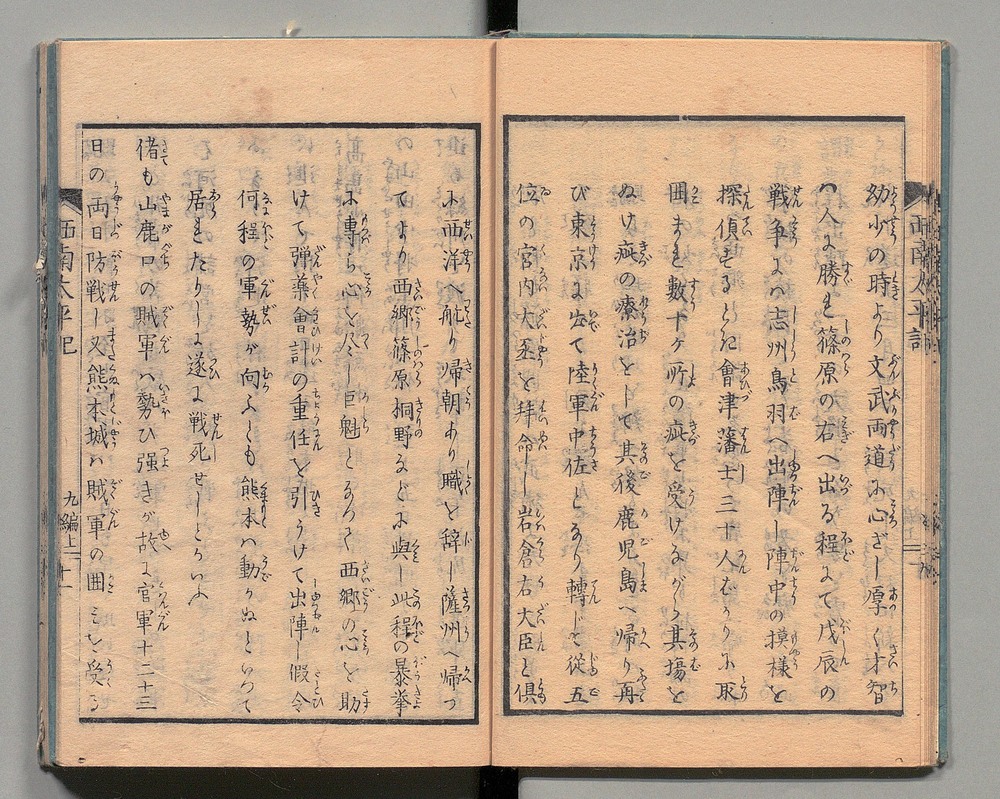 幼少の時より文武両道に心ざし厚く才智
ハ人に勝れ篠原の右へ出る程にて戊辰の
戦争にハ志州鳥羽へ出陣し陣中の摸様を
探偵するとき會津藩士三十人ばかりに取
囲まれ数十ヶ所の疵を受けながら其場を
ぬけ疵の療治をして其後鹿児島へ帰り再
び東京に出て陸軍中佐となり轉じて従五
位の宮内大丞を拝命し岩倉右大臣と倶
に西洋へ航り帰朝あり職を辞し薩州へ帰つ
てより西郷篠原桐野などに與し此程の暴挙
に専ら心を尽し巨魁となつて西郷の心を助
けて弾薬會計の重任を引うけて出陣し假令
何程の軍勢が向ふとも熊本ハ動かぬといつて
居れたりしに遂に戦死せしとかいふ
偖も山鹿口の賊軍ハ勢ひ強きが故に官軍十二十三
日の両日防戦し又熊本城ハ賊軍の囲ミを受る
西南太平記
九編上
十一